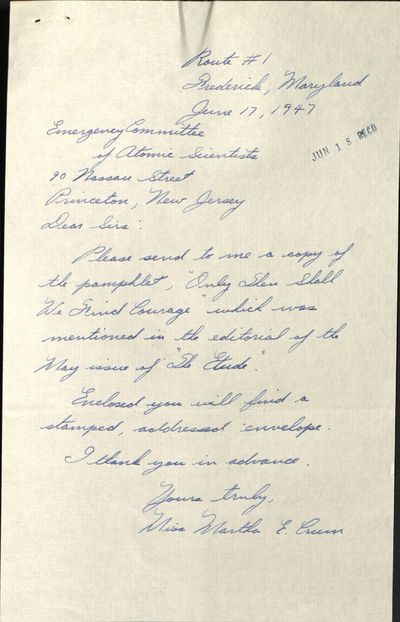 Route #1
Frederick, Maryland
June 17, 1947
JUN 18 REC'D
Emergency Committee
of Atomic Scientists
90 Nassau Street
Princeton, New Jersey
Dear Sirs:
Please send to me a copy of
the pamphlet, "Only Then Shall
We Find Courage" which was
mentioned in the editorial of the
May issue of "The Etude".
Enclosed you will find a
stamped, addressed envelope.
I thank you in advance.
Yours truly,
Miss Martha E. Crum